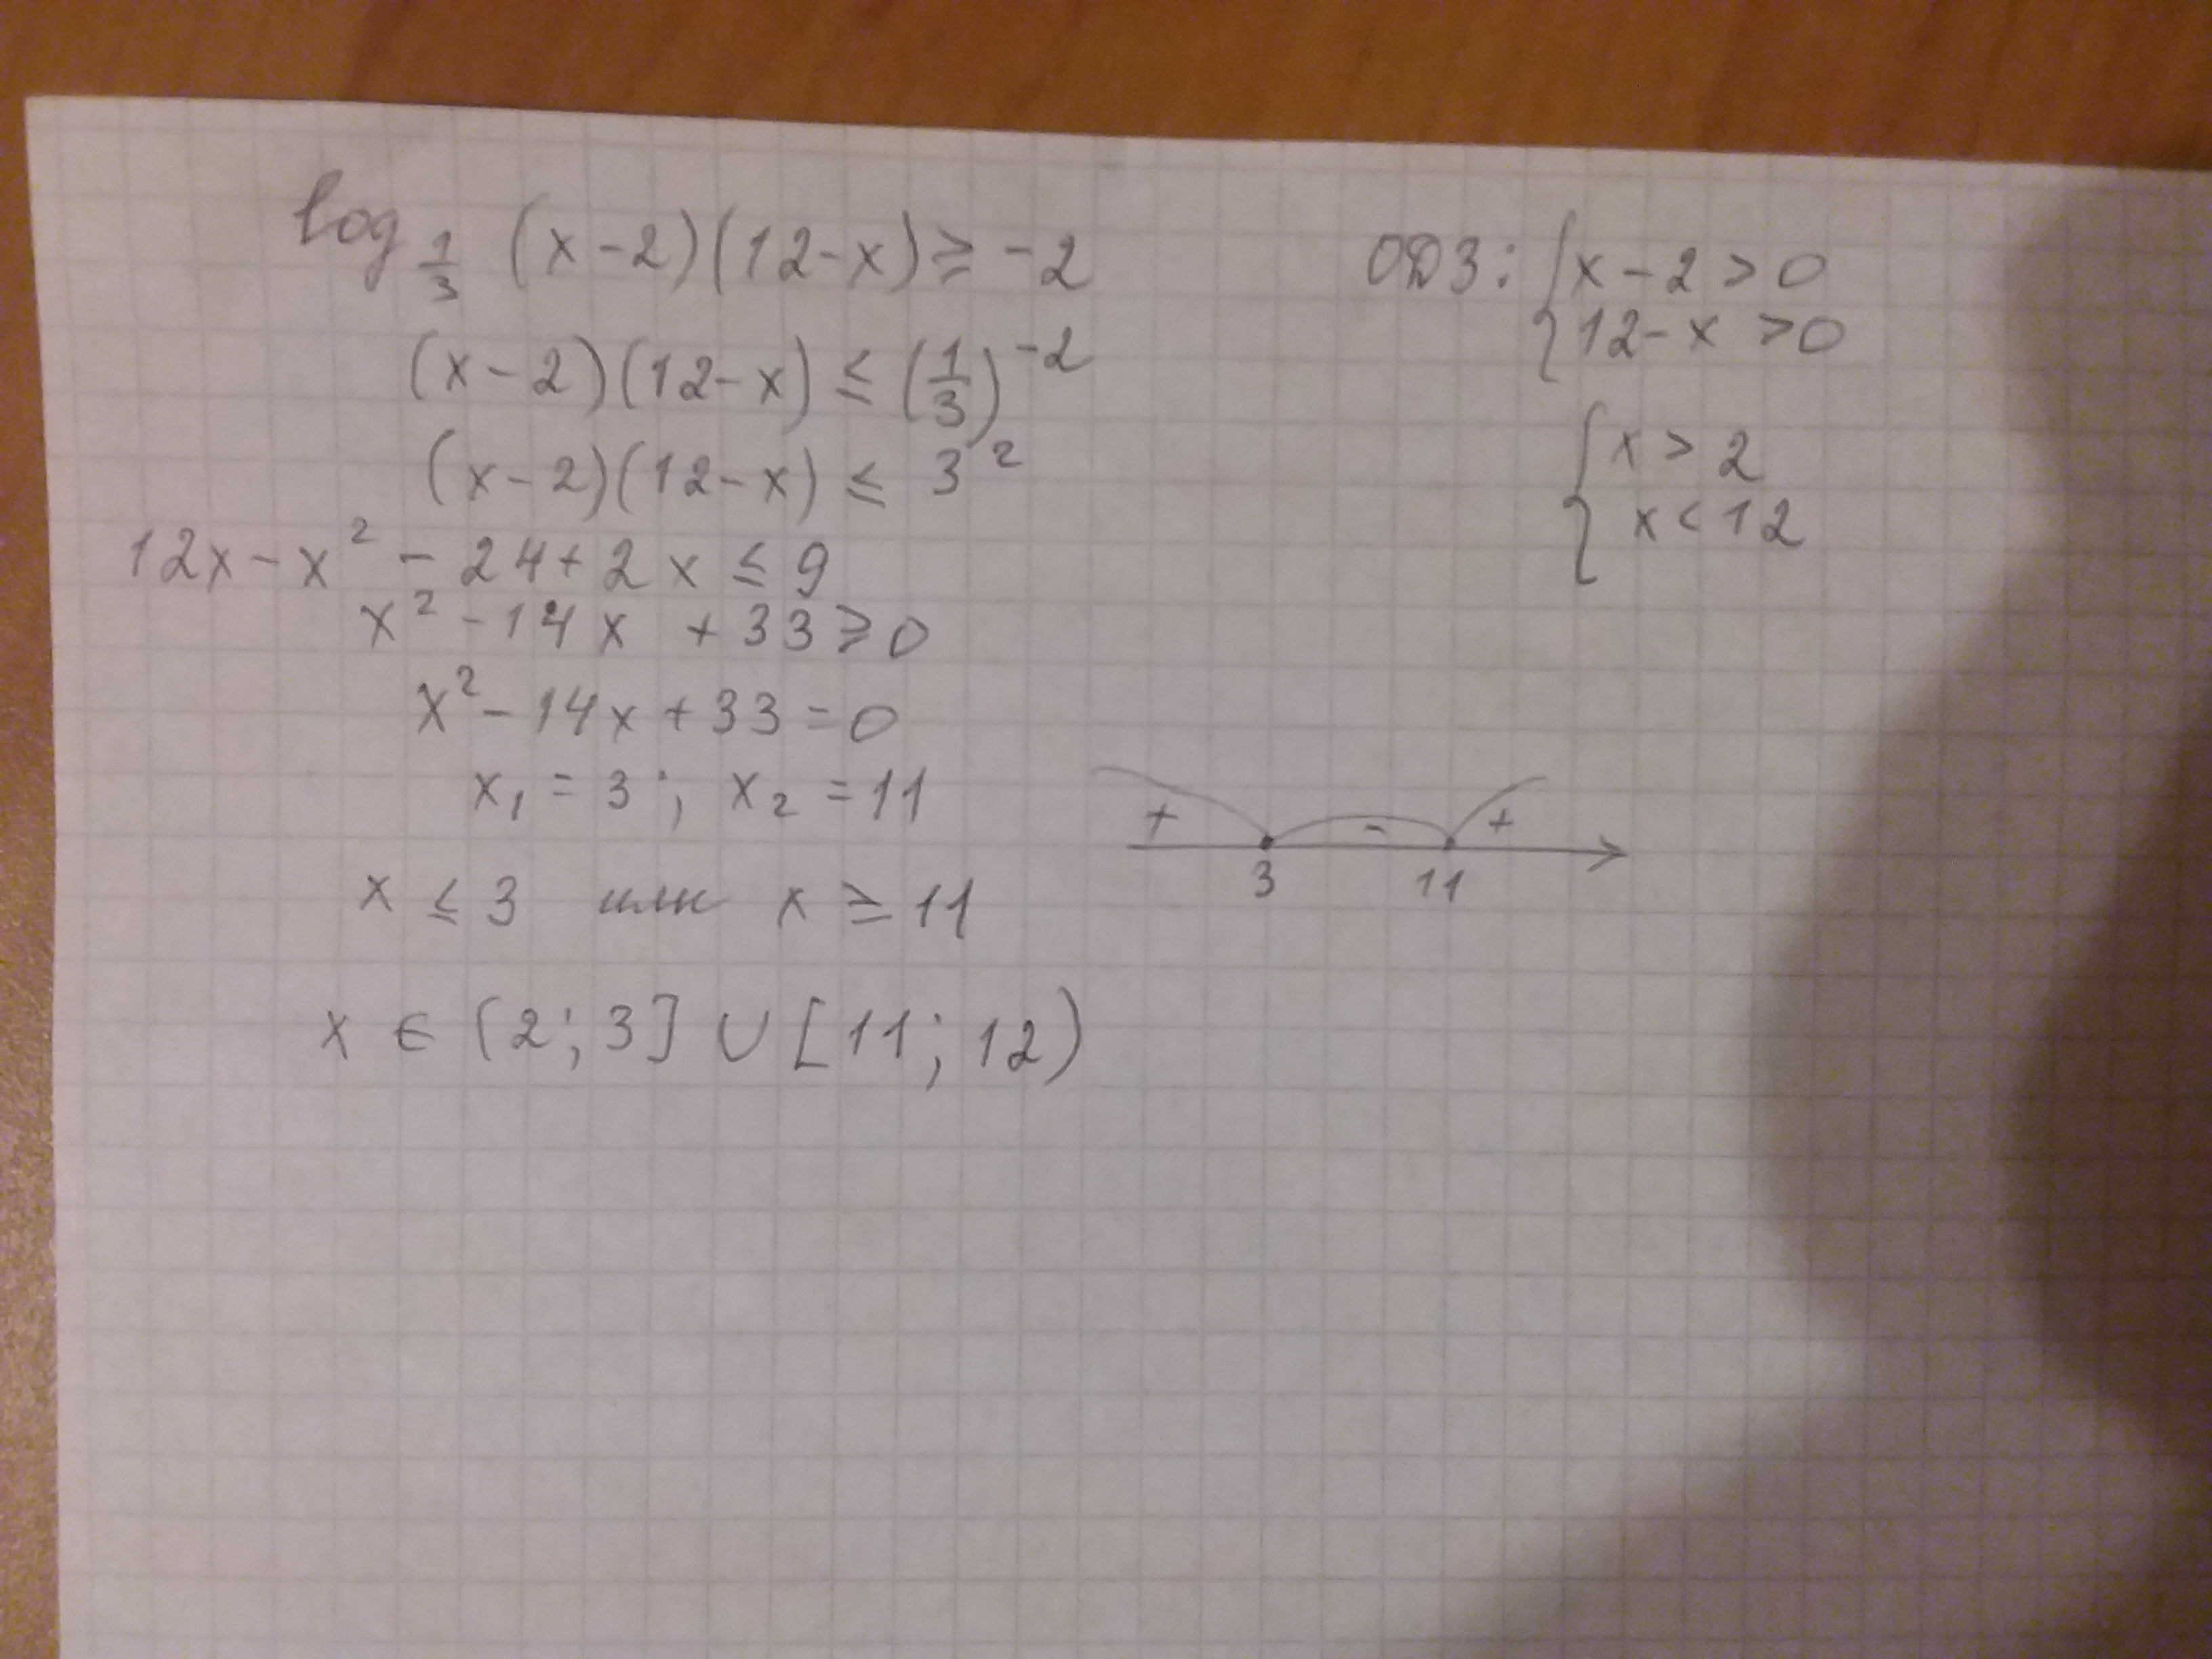 log 1/3 (x-2)(12-x) ≥ -2
(x-2)(12-x) ≤ (1/3)^-2
(x-2)(12-x) ≤ 3²
12x - x² - 24 + 2x ≤ 9
x² - 14x + 33 ≥ 0
x² - 14x + 33 = 0
x₁ = 3 ; x₂ = 11
x ≤ 3 или x ≥ 11
x ∈ (2; 3] ∪ [11; 12)
ОДЗ: { x - 2 > 0
12 - x > 0
{ x > 2
x < 12
+ - +
3 11